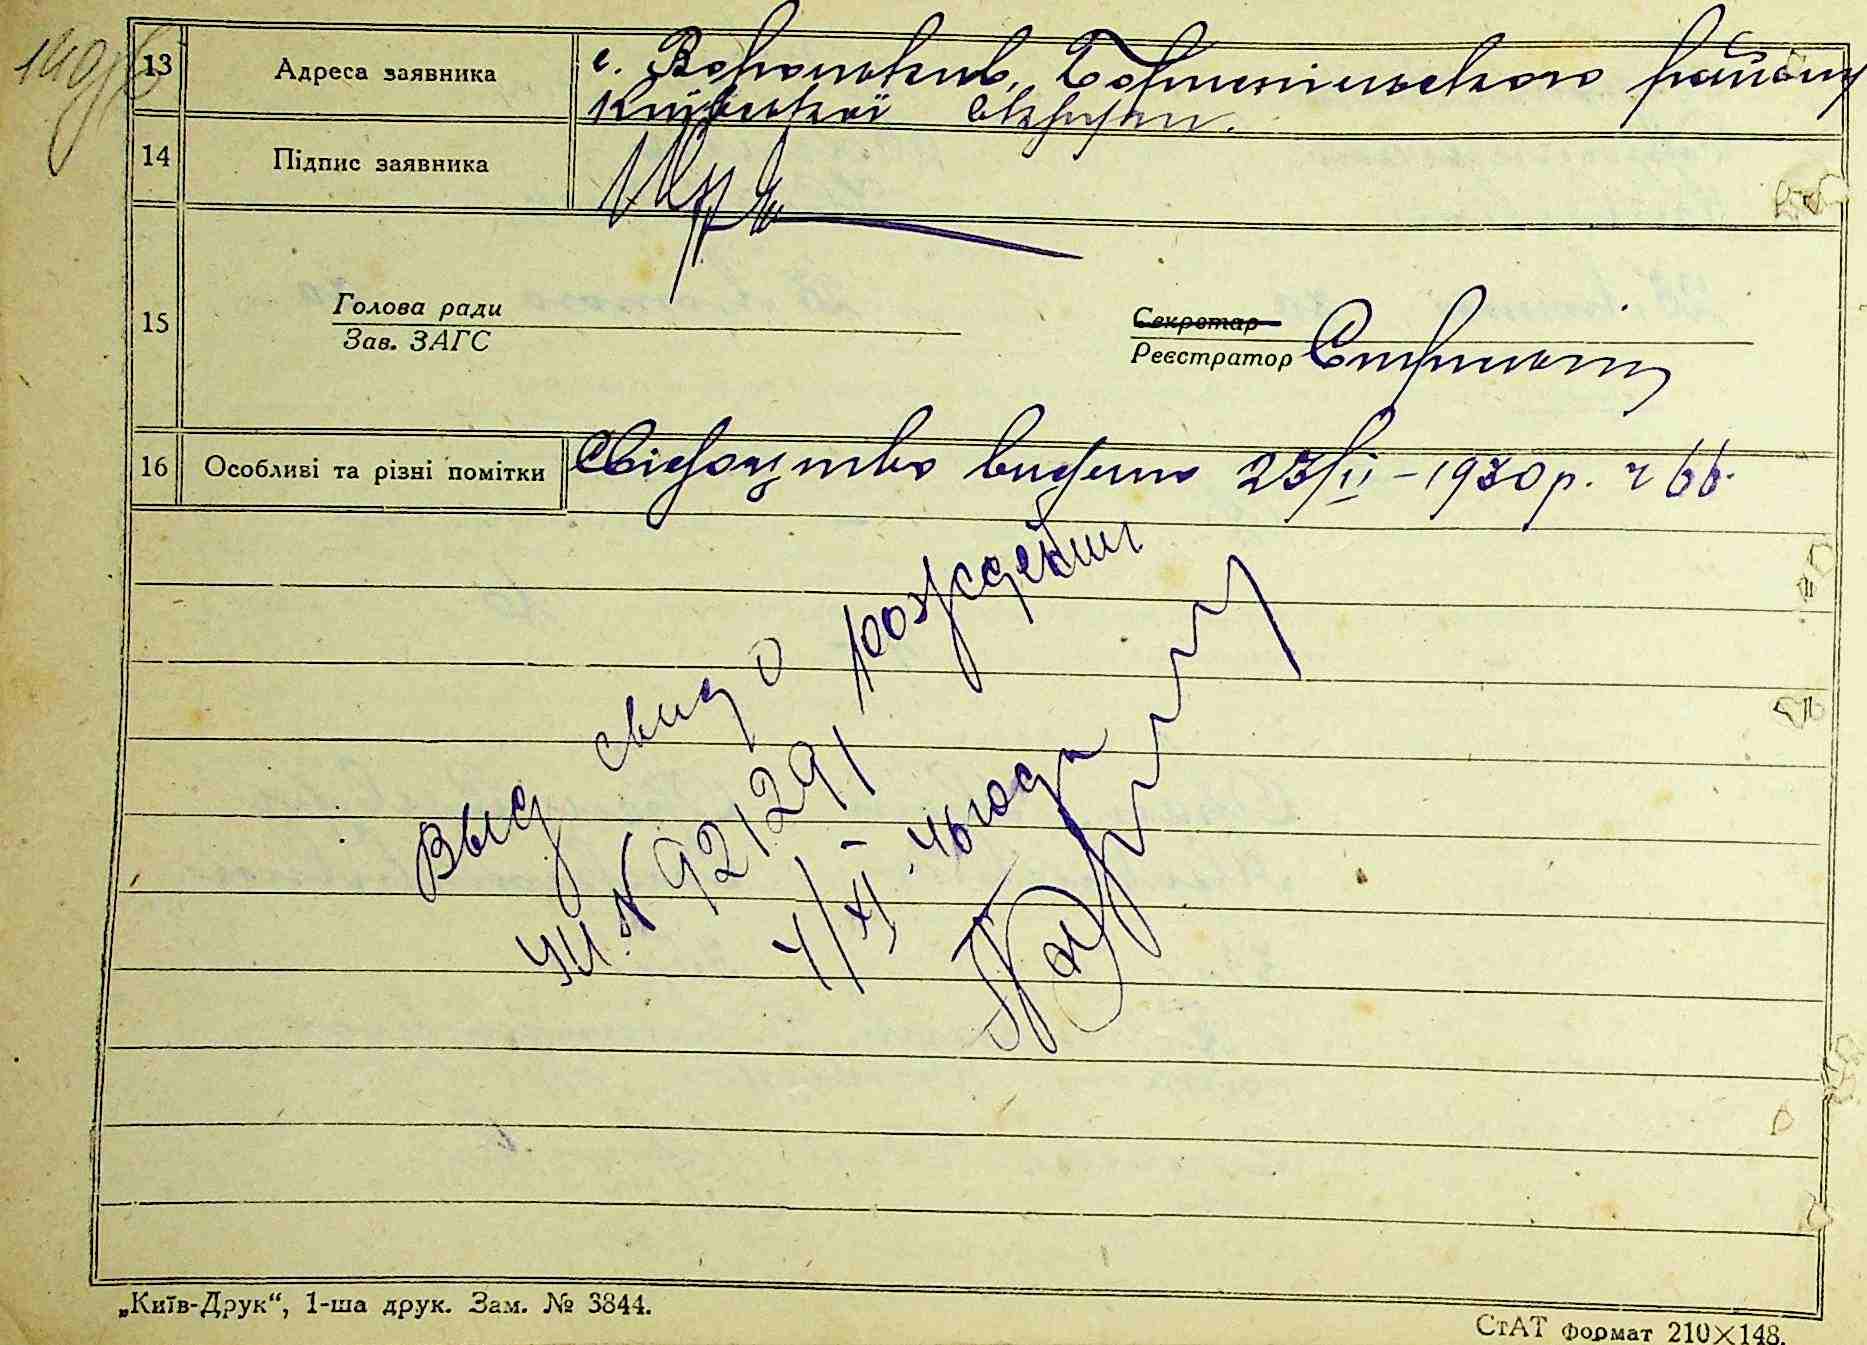 13 Адреса заявника с. Вороньків, Бориспільського району
Київської округи.
14 Підпис заявника
15 Голова ради
Зав. ЗАГС
Секретар
Реєстратор
16 Особливі та різні помітки Свідоцтво видано 23/II – 1930 р. ч 66.
Выд свид о рождении
№ 921291
4/XI – 46 года
„Київ-Друк“, 1-ша друк. Зам. № 3844.
СтАТ формат 210×148.